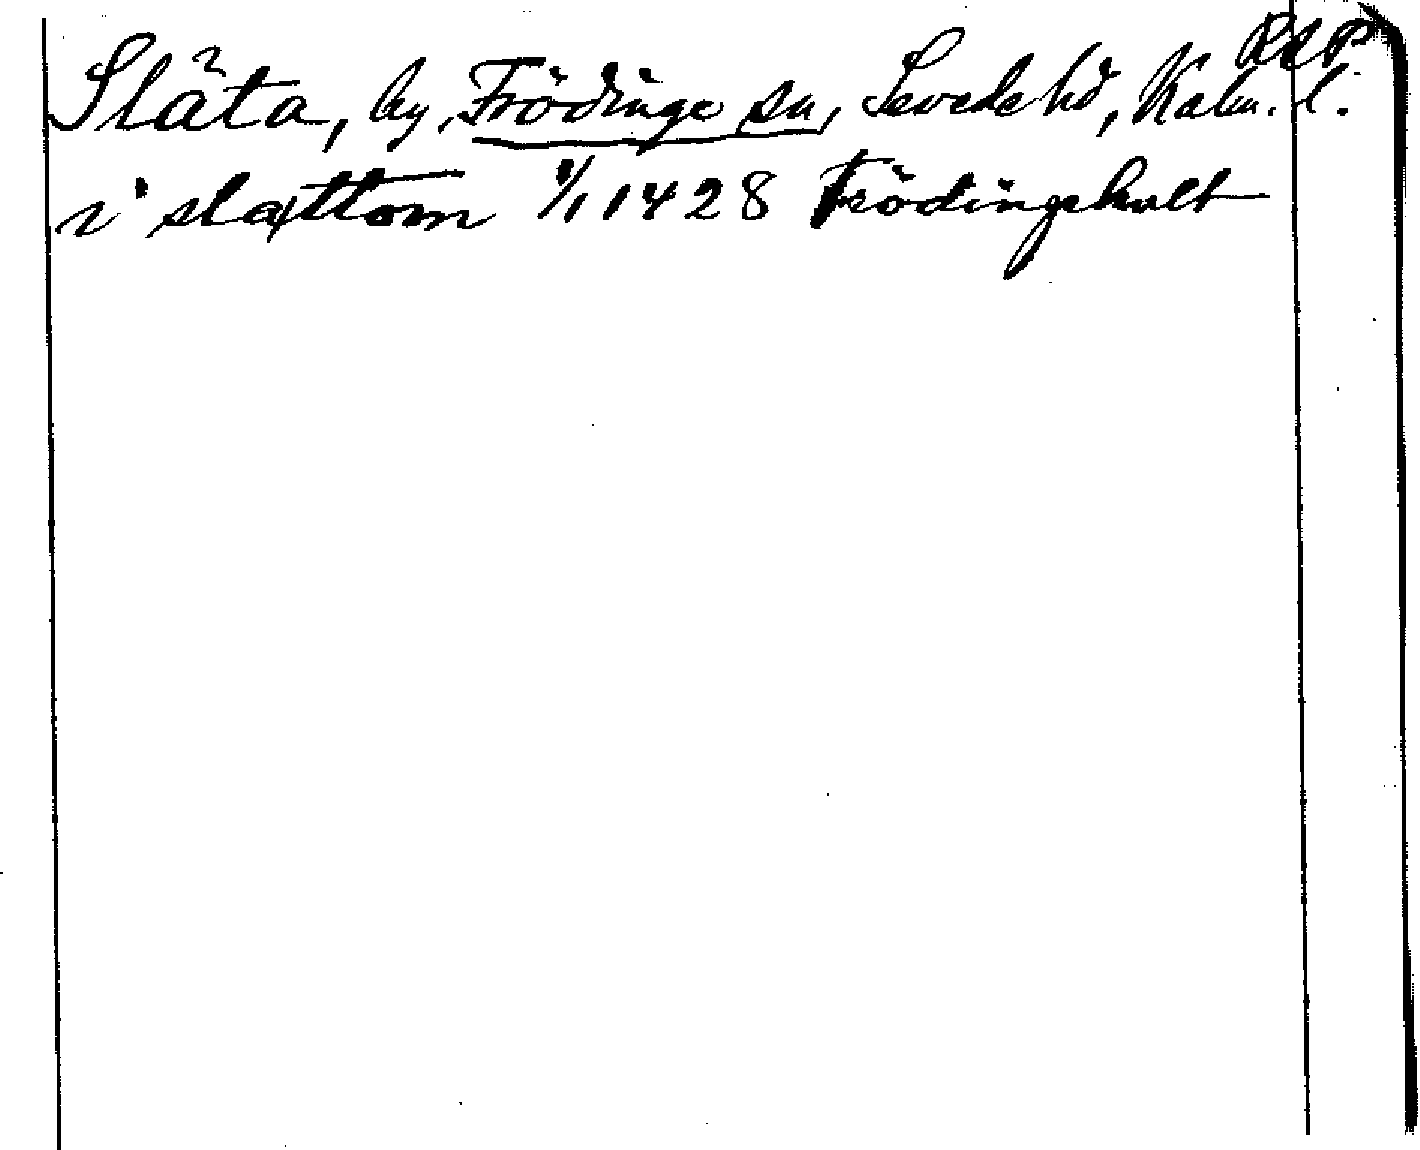 RAP
Släta, by, Frödinge sn, Sevede hd, Kalm. l.
i slættom 1/1 1428 Frödingehult